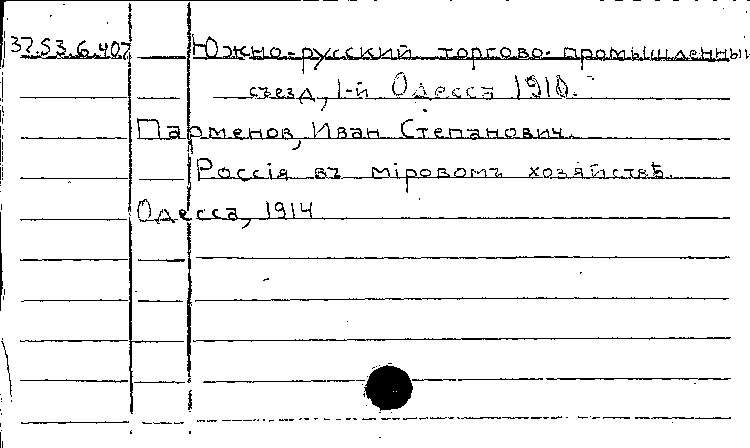 37.53.6.407 Южно-русский торгово-промышленный
съезд, 1-й Одесса 1910.
Парменов, Иван Степанович.
Россія въ міровомъ хозяйствѣ.
Одесса, 1914